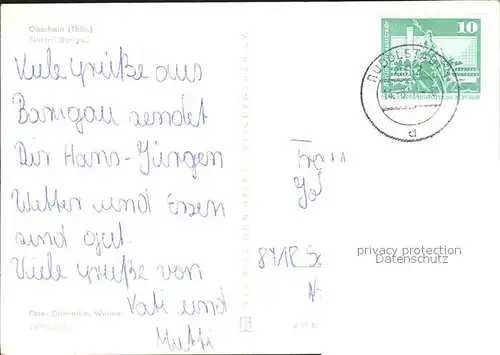 Oberhain (Thür.)
Ortsteil Barigau
Viele Grüße aus
Barigau sendet
Dir Hans-Jürgen
Wetter und Essen
sind gut.
Viele Grüße von
Vati und
Mutti
Foto: Dämmrich, Weimar
10
RUDOLSTADT
d
8718
privacy protection
Datenschutz